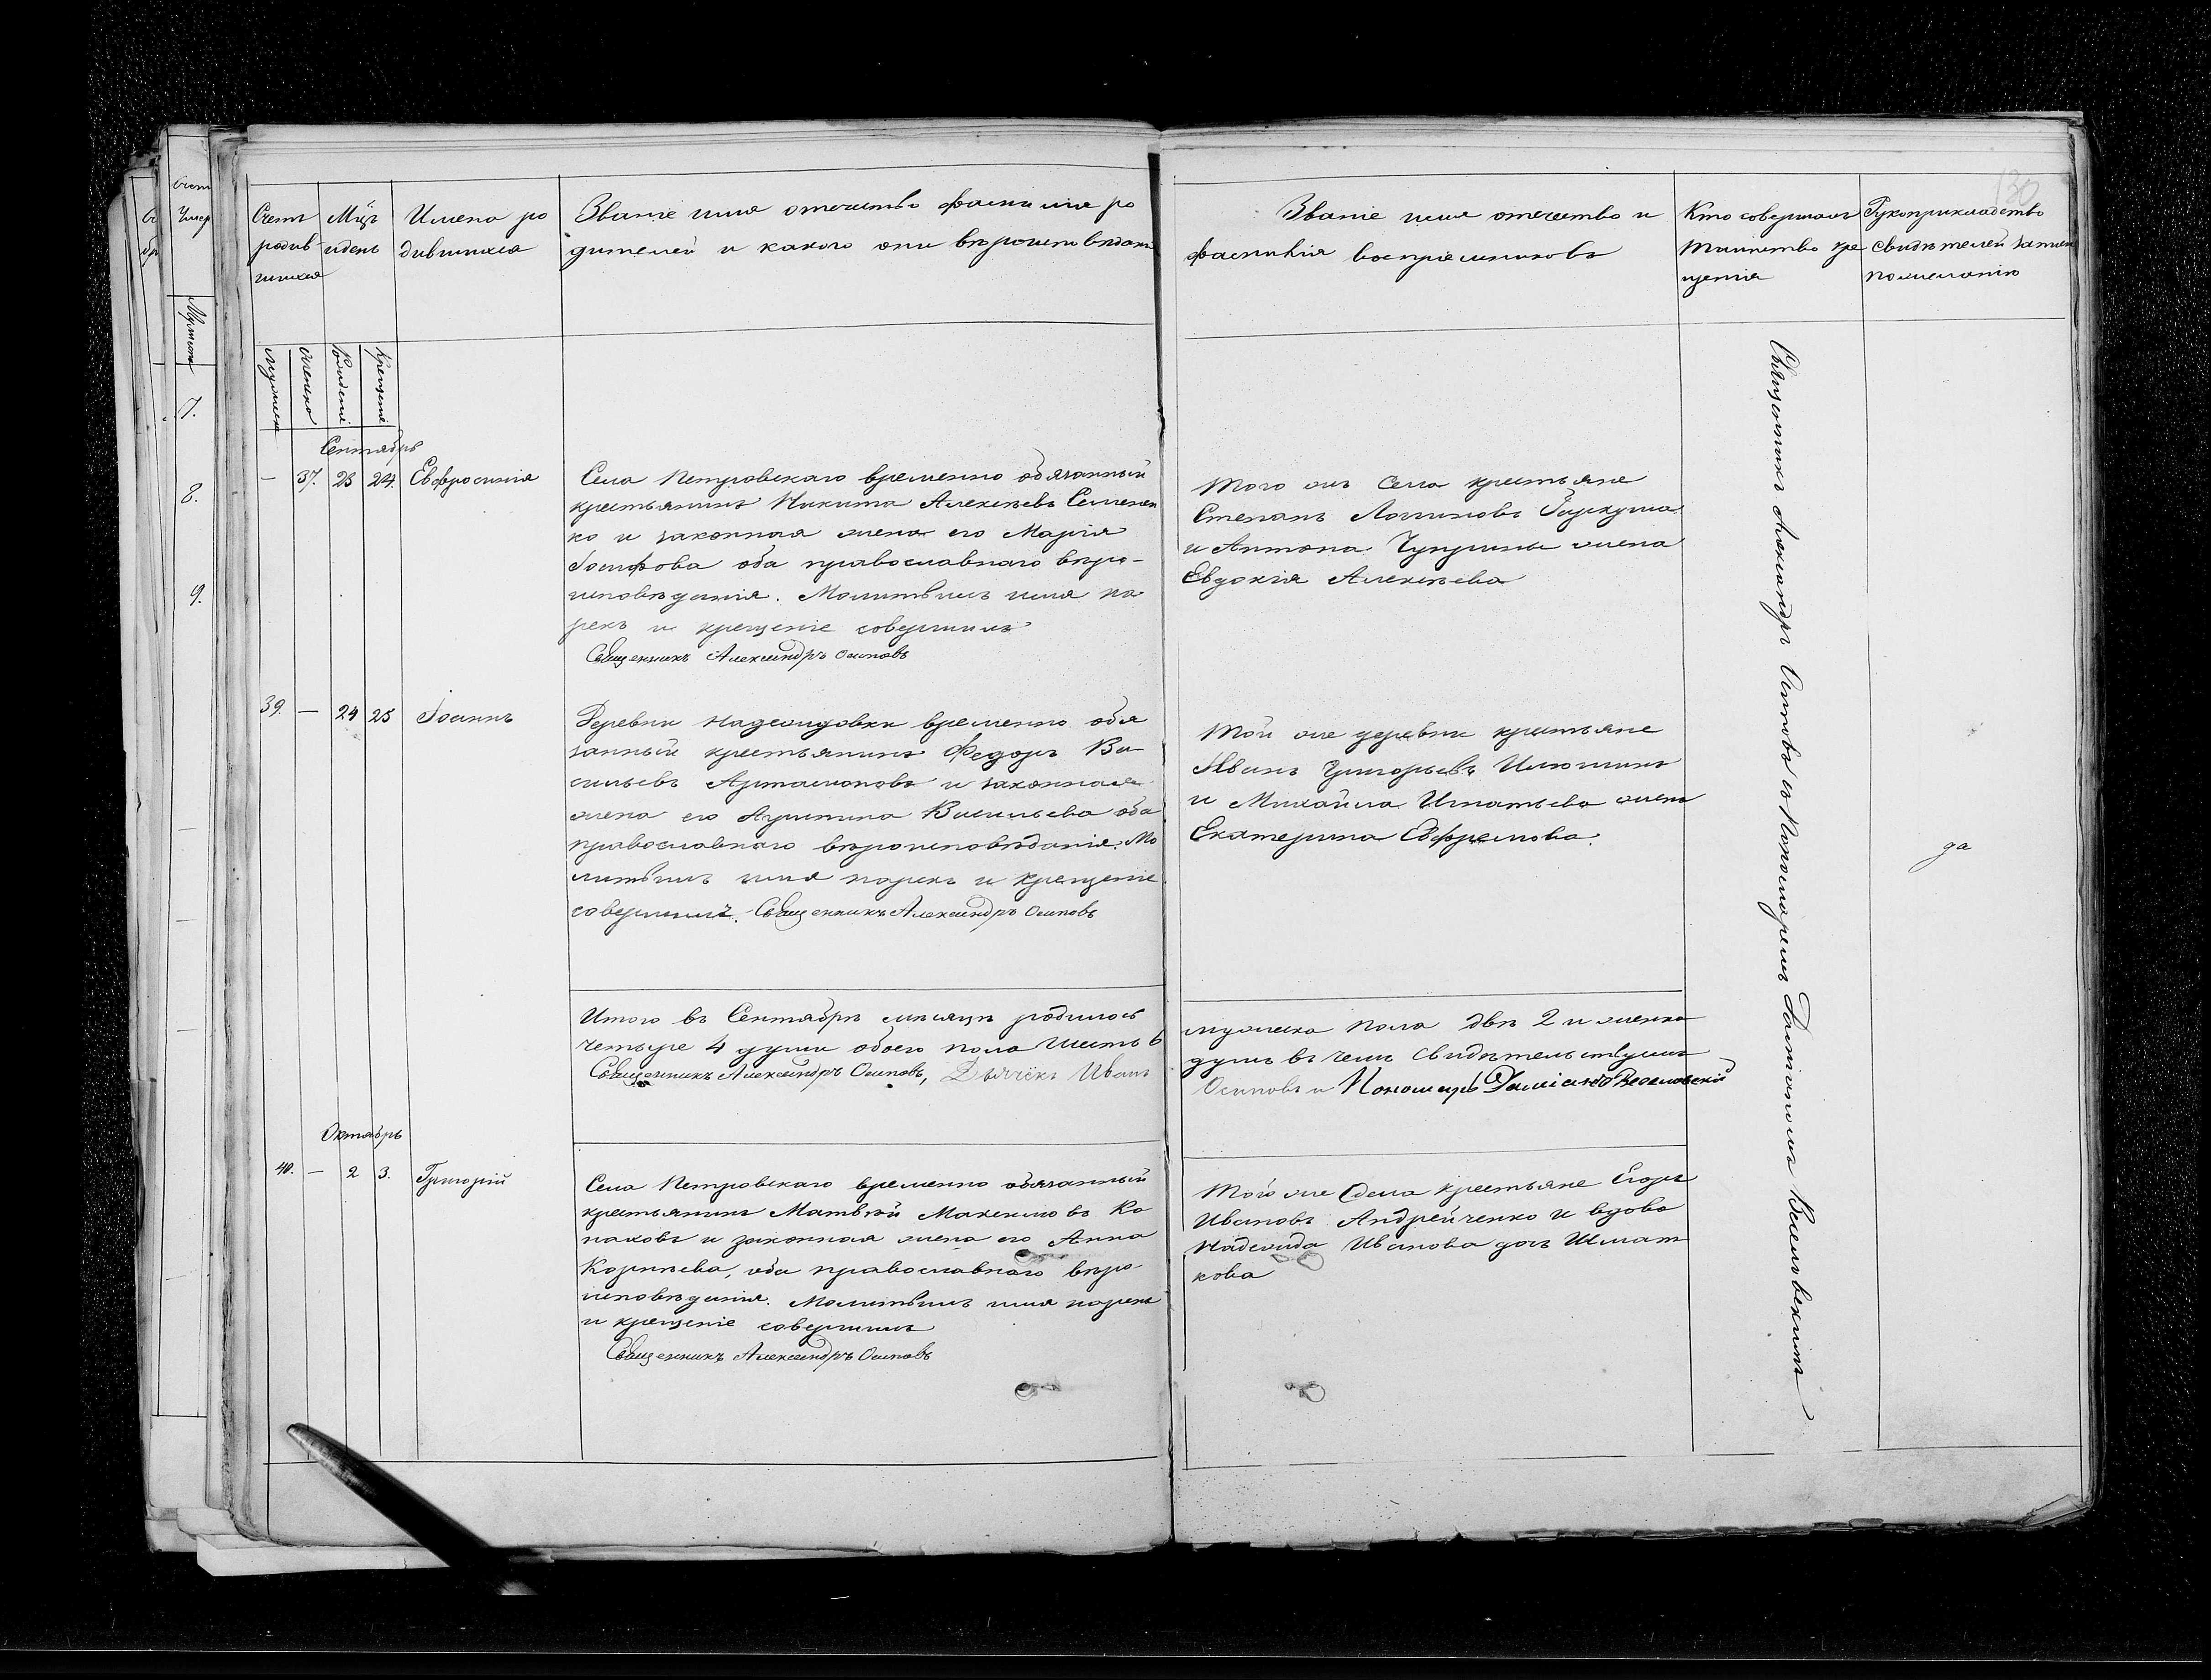 Счетъ родив-шихся
Мцъ и день
Имена ро
дившихся
Званіе имя отечество фамилія ро
дителей и какого они вѣроисповѣданія
Званіе имя отечество и
фамилія воспріемниковъ
Кто совершалъ
таинство кре
щенія
Рукоприкладство
свидѣтелей записи
по желанію
130
Мужеска
Женска
Рожденія
Крещенія
Сентябрь
— 37. 23 24. Евфросинія
Села Петровскаго временно обязанный
крестьянинъ Никита Алексѣевъ Семенен
ко и законная жена его Марія
Іосифова оба православнаго вѣро-
исповѣданія. Молитвилъ имя на
рекъ и крещеніе совершилъ
Священникъ Александръ Осиповъ
Того же села крестьяне
Степанъ Логиновъ Гаркуша
и Антона Чуприны жена
Евдокія Алексѣева
39. — 24 25 Іоаннъ
Деревни Надеждовки временно обя
занный крестьянинъ Федоръ Ва
сильевъ Артамоновъ и законная
жена его Агрипина Васильева оба
православнаго вѣроисповѣданія. Мо
литвилъ имя нарекъ и крещеніе
совершилъ. Священникъ Александръ Осиповъ
Той же деревни крестьяне
Иванъ Григорьевъ Илюшинъ
и Михаила Игнатьева жена
Екатерина Ефремова.
да
Священникъ Александръ Осиповъ съ Пономаремъ Даміаномъ Веселовскимъ
Итого въ Сентябрѣ мѣсяцѣ родилось
четыре 4 души обоего пола шесть 6
Священникъ Александръ Осиповъ, Дьячекъ Иванъ
мужеска пола двѣ 2 и женска
душъ въ чемъ свидѣтельствуемъ
Осиповъ и Пономарь Даміанъ Веселовскій
Октябрь
40. — 2 3. Григорій
Села Петровскаго временно обязанный
крестьянинъ Матвѣй Максимовъ Ко
наковъ и законная жена его Анна
Корнѣева, оба православнаго вѣро-
исповѣданія. Молитвилъ имя нарекъ
и крещеніе совершилъ
Священникъ Александръ Осиповъ
Того же Села крестьяне Егоръ
Ивановъ Андрейченко и вдова
Надежда Иванова дочь Шмат
кова
7.
8.
9.